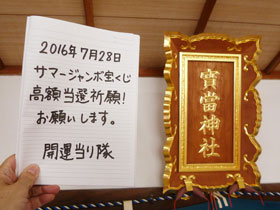 2016年7月28日
サマージャンボ宝くじ
高額当選祈願!
お願いします。
開運当り隊
寶當神社